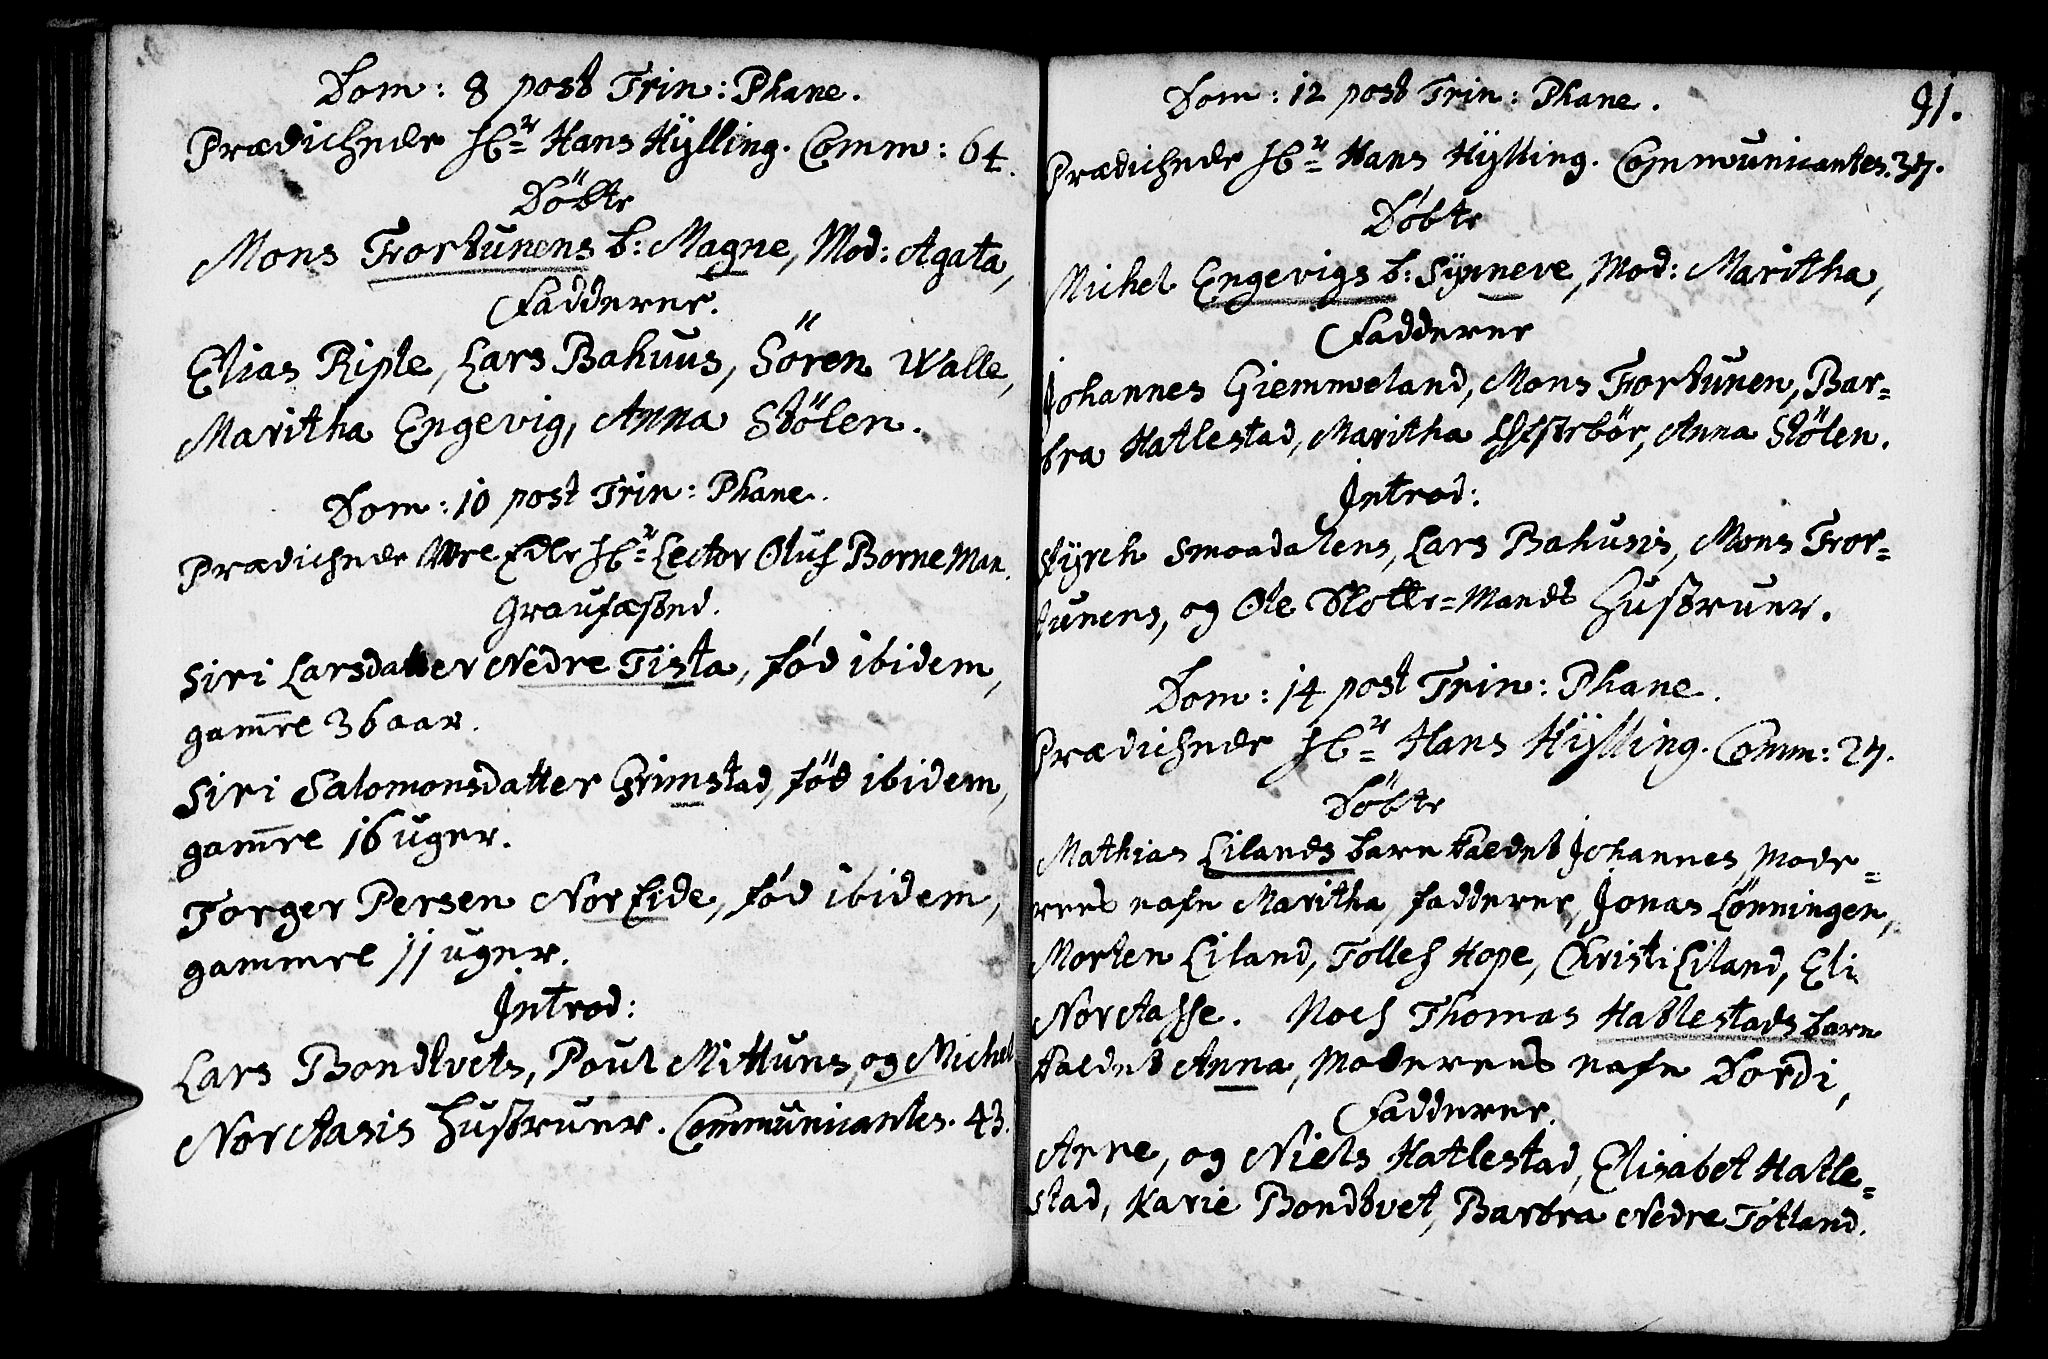 Dom: 8 post Trin: Phane.
Prædichede Hr= Hans Hÿlling. Comm: 64.
Döbte
Mons Frortunens b: Magne, Mod: Agata,
Fadderer.
Elias Riple, Lars Bahuus, Sören Walle,
Maritha Engevig, Anna Stölen.
Dom: 10 post Trin: Phane.
Prædichede Hr= Lector Oluf Borneman.
Graufæsted.
Siri Larsdatter Nedre Tista, fód ibidem,
gam̅el 36 aar.
Siri Salomonsdatter Grimstad, föd ibidem,
gam̅el 16 uger.
Torger Persen Nor Eide, fód ibidem,
gammel 11 uger.
Introd:
Lars Bondtvets, Poul Mittuns, og Michel
Norctasis Hustruer. Communicantes. 43.
91.
Dom: 12 post Trin: Phane.
Prædichede Hr= Hans Hÿlling. Communicantes. 37.
Döbte
Michel Engevigs b: Sÿnneve, Mod: Maritha,
Fadderer
Johannes Giemmeland, Mons Frortunen, Bar=
bra Hatlestad, Maritha Anna Stölen.
Introd:
Styrch Smaadalens, Lars Bahusis, Mons Fror=
tunens, og Ole Slotte=Mands Hustruer.
Dom: 14 post Trin: Phane.
Prædichede Hr= Hans Hÿlling. Comm: 27.
Döbte
Mathias Lilands barn kaldet Johannes Mode=
rens nafn Maritha, fadderer, Jonas Lönningen,
Morten Liland, Tollef Hope, Christi Liland, Eli
Norctasse. Noch Thomas Hatlestads barn
kaldet Anna, Moderens nafn Dordi,
Fadderer.
Arne, og Niels Hatlestad, Elisabet Hatle=
stad, Karie Bondtvet, Barbra Nedre Tótland.